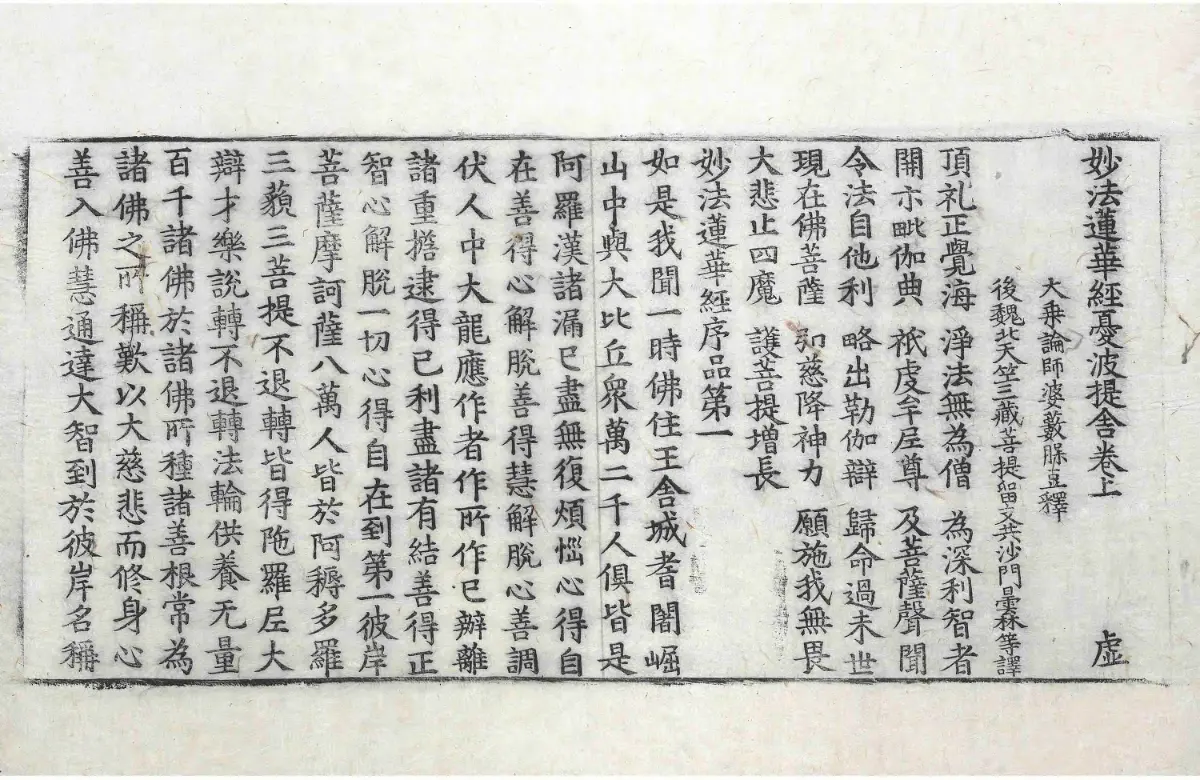 妙法蓮華經憂波提舍卷上 虛
大乘論師婆藪脙豆釋
後魏北天竺三藏菩提留支共沙門曇林等譯
頂礼正覺海 淨法無為僧 為深利智者
開示毗伽典 祇虔牟尼尊 及菩薩聲聞
令法自他利 略出勒伽辯 歸命過未世
現在佛菩薩 弘慈降神力 願施我無畏
大悲止四魔 護菩提增長
妙法蓮華經序品第一
如是我聞一時佛住王舍城耆闍崛
山中與大比丘眾萬二千人俱皆是
阿羅漢諸漏已盡無復煩惱心得自
在善得心解脫善得慧解脫心善調
伏人中大龍應作者作所作已辦離
諸重擔逮得已利盡諸有結善得正
智心解脫一切心得自在到第一彼岸
菩薩摩訶薩八萬人皆於阿耨多羅
三藐三菩提不退轉皆得陁羅尼大
辯才樂說轉不退轉法輪供養无量
百千諸佛於諸佛所種諸善根常為
諸佛之所稱歎以大慈悲而修身心
善入佛慧通達大智到於彼岸名稱